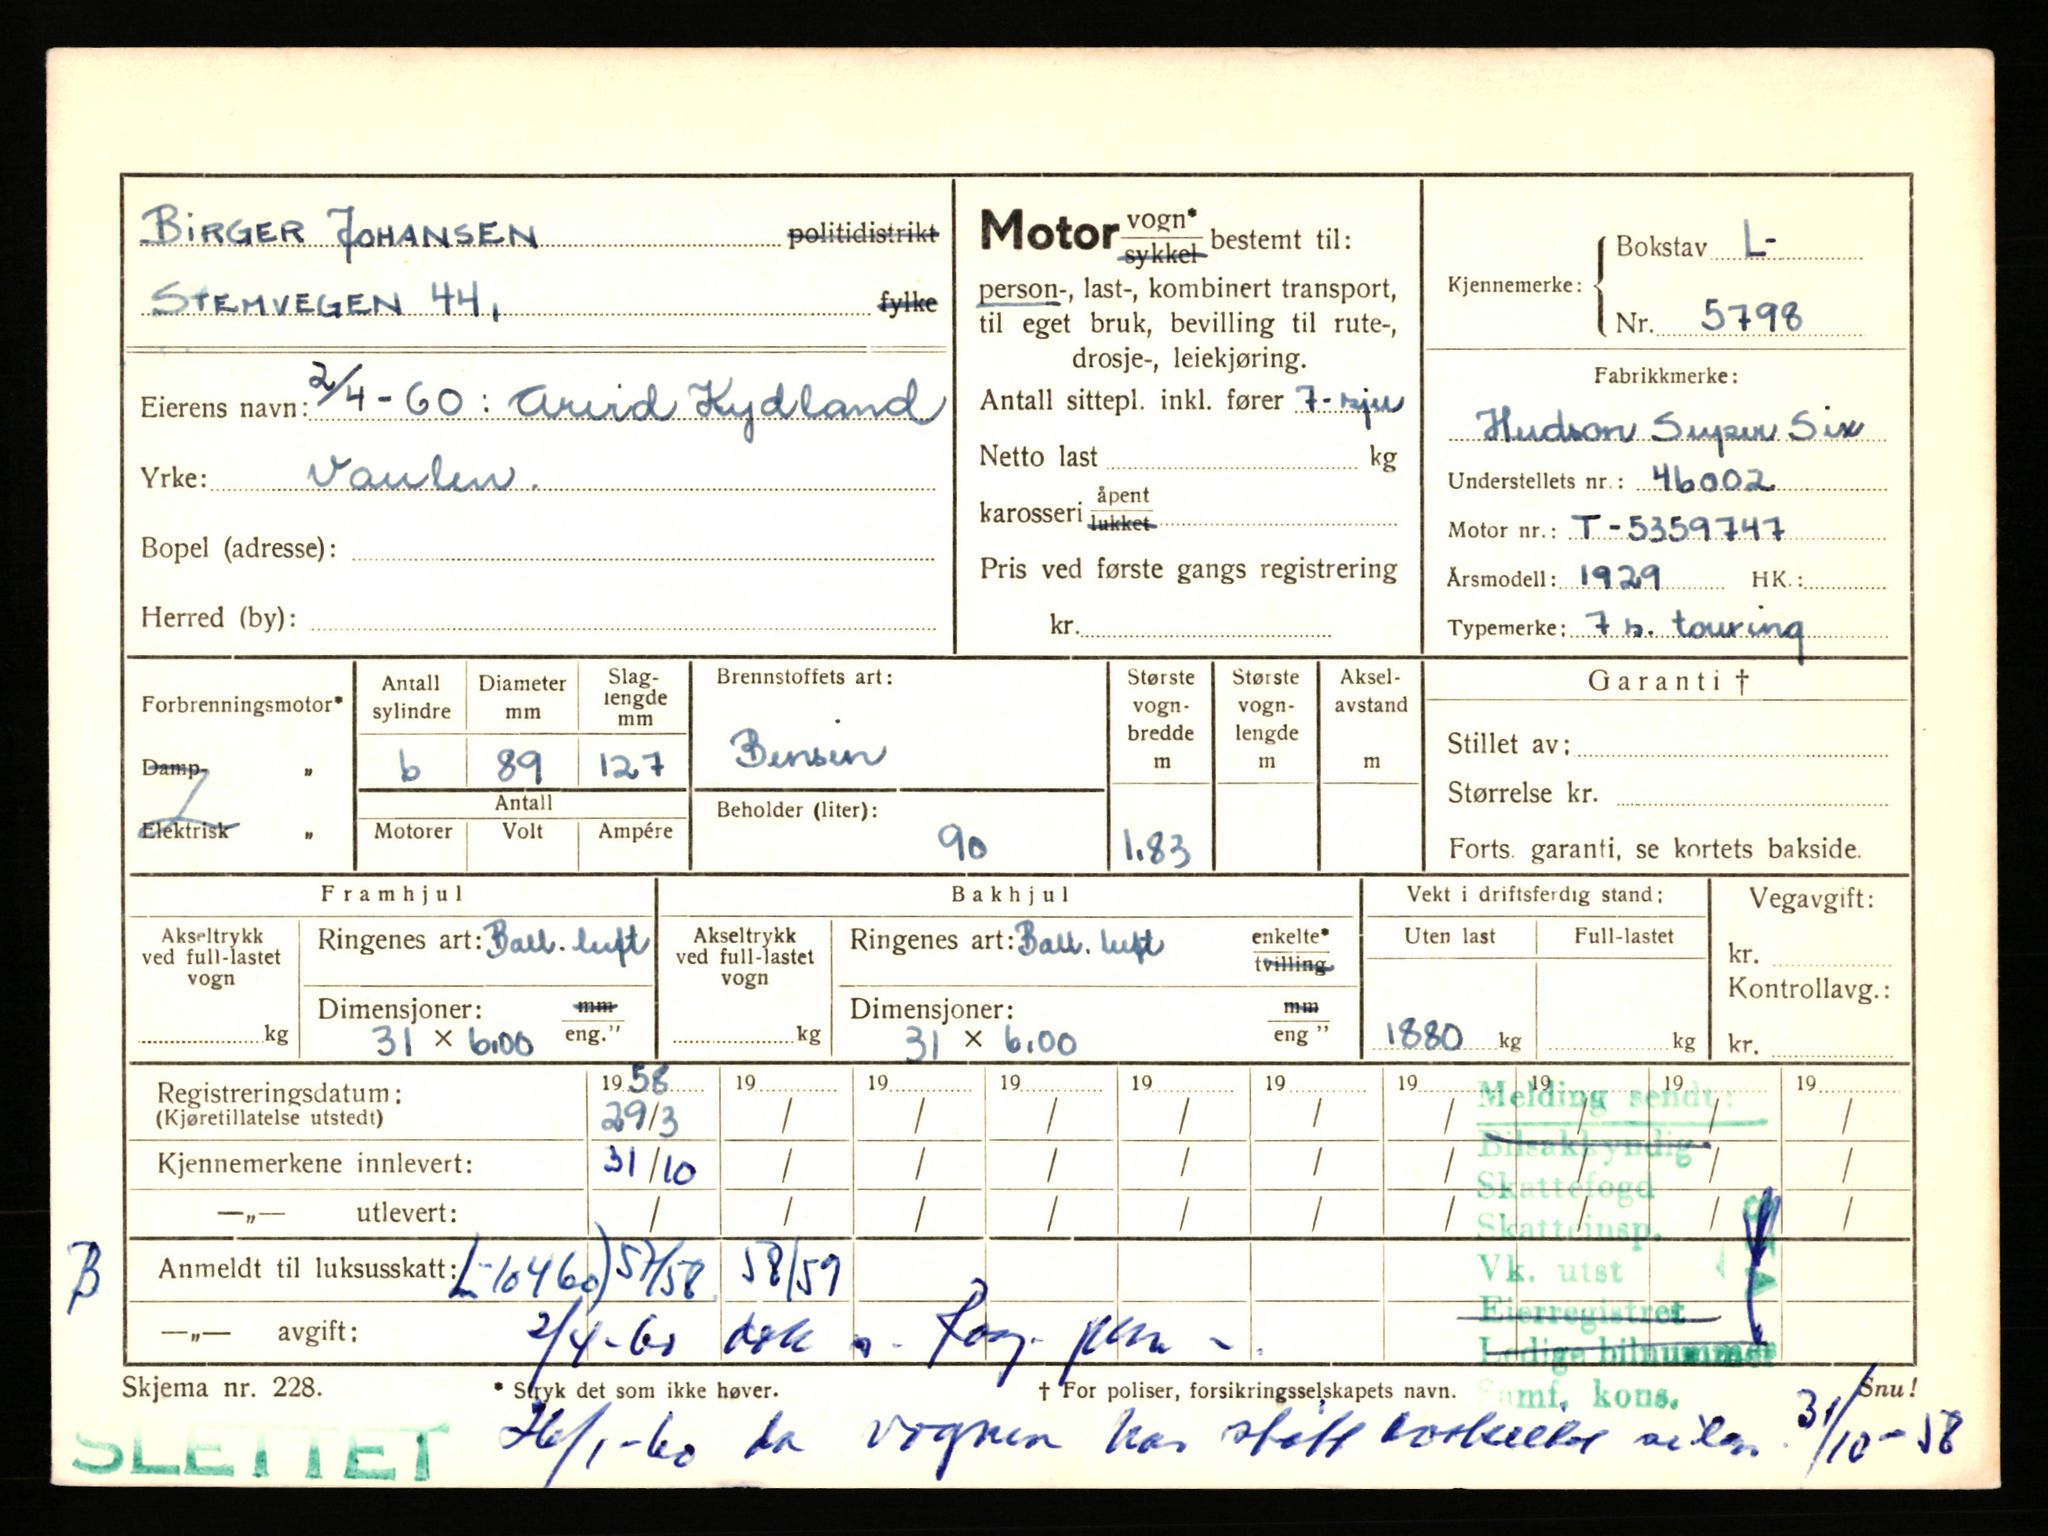 BIRGER JOHANSEN politidistrikt
STEMVEGEN 44, fylke
Eierens navn: 2/4-60: Arvid Kydland
Yrke: Vaulen.
Bopel (adresse):
Herred (by):
Motor vogn* sykkel bestemt til:
person-, last-, kombinert transport,
til eget bruk, bevilling til rute-,
drosje-, leiekjøring.
Antall sittepl. inkl. fører 7-sju
Netto last kg
karosseri åpent lukket
Pris ved første gangs registrering
kr.
Kjennemerke: Bokstav L-
Nr. 5798
Fabrikkmerke:
Hudson Super Six
Understellets nr.: 46002
Motor nr.: T-5359747
Årsmodell: 1929 HK.:
Typemerke: 7 s. touring
Forbrenningsmotor*
Damp- „
Elektrisk „
Antall sylindre
6
Diameter mm
89
Slaglengde mm
127
Antall
Motorer Volt Ampére
Brennstoffets art:
Bensin
Beholder (liter):
90
Største vognbredde m
1.83
Største vognlengde m
Akselavstand m
Garanti †
Stillet av:
Størrelse kr.
Forts. garanti, se kortets bakside.
Framhjul
Akseltrykk ved full-lastet vogn
kg
Ringenes art: Ball. luft
Dimensjoner: mm
31 × 6.00 eng."
Bakhjul
Akseltrykk ved full-lastet vogn
kg
Ringenes art: Ball. luft enkelte* tvilling
Dimensjoner: mm
31 × 6.00 eng "
Vekt i driftsferdig stand:
Uten last Full-lastet
1880 kg kg
Vegavgift:
kr.
Kontrollavg.:
kr.
Registreringsdatum: 1958 19 19 19 19 19 19 19 19 19
(Kjøretillatelse utstedt) 29/3 / / / / / / / / /
Kjennemerkene innlevert: 31/10 / / / / / / / / /
—„— utlevert: / / / / / / / / / /
B Anmeldt til luksusskatt: L-10460) 57/58 58/59
—„— avgift: 2/4-60
Melding sendt:
Bilsakkyndig
Skattefogd
Skatteinsp.
Vk. utst
Eierregistret
Ledige bilnummer
Samf. kons.
Skjema nr. 228. * Stryk det som ikke høver. † For poliser, forsikringsselskapets navn. Snu!
SLETTET 26/1-60 da vognen har stått avskiltet siden 31/10-58